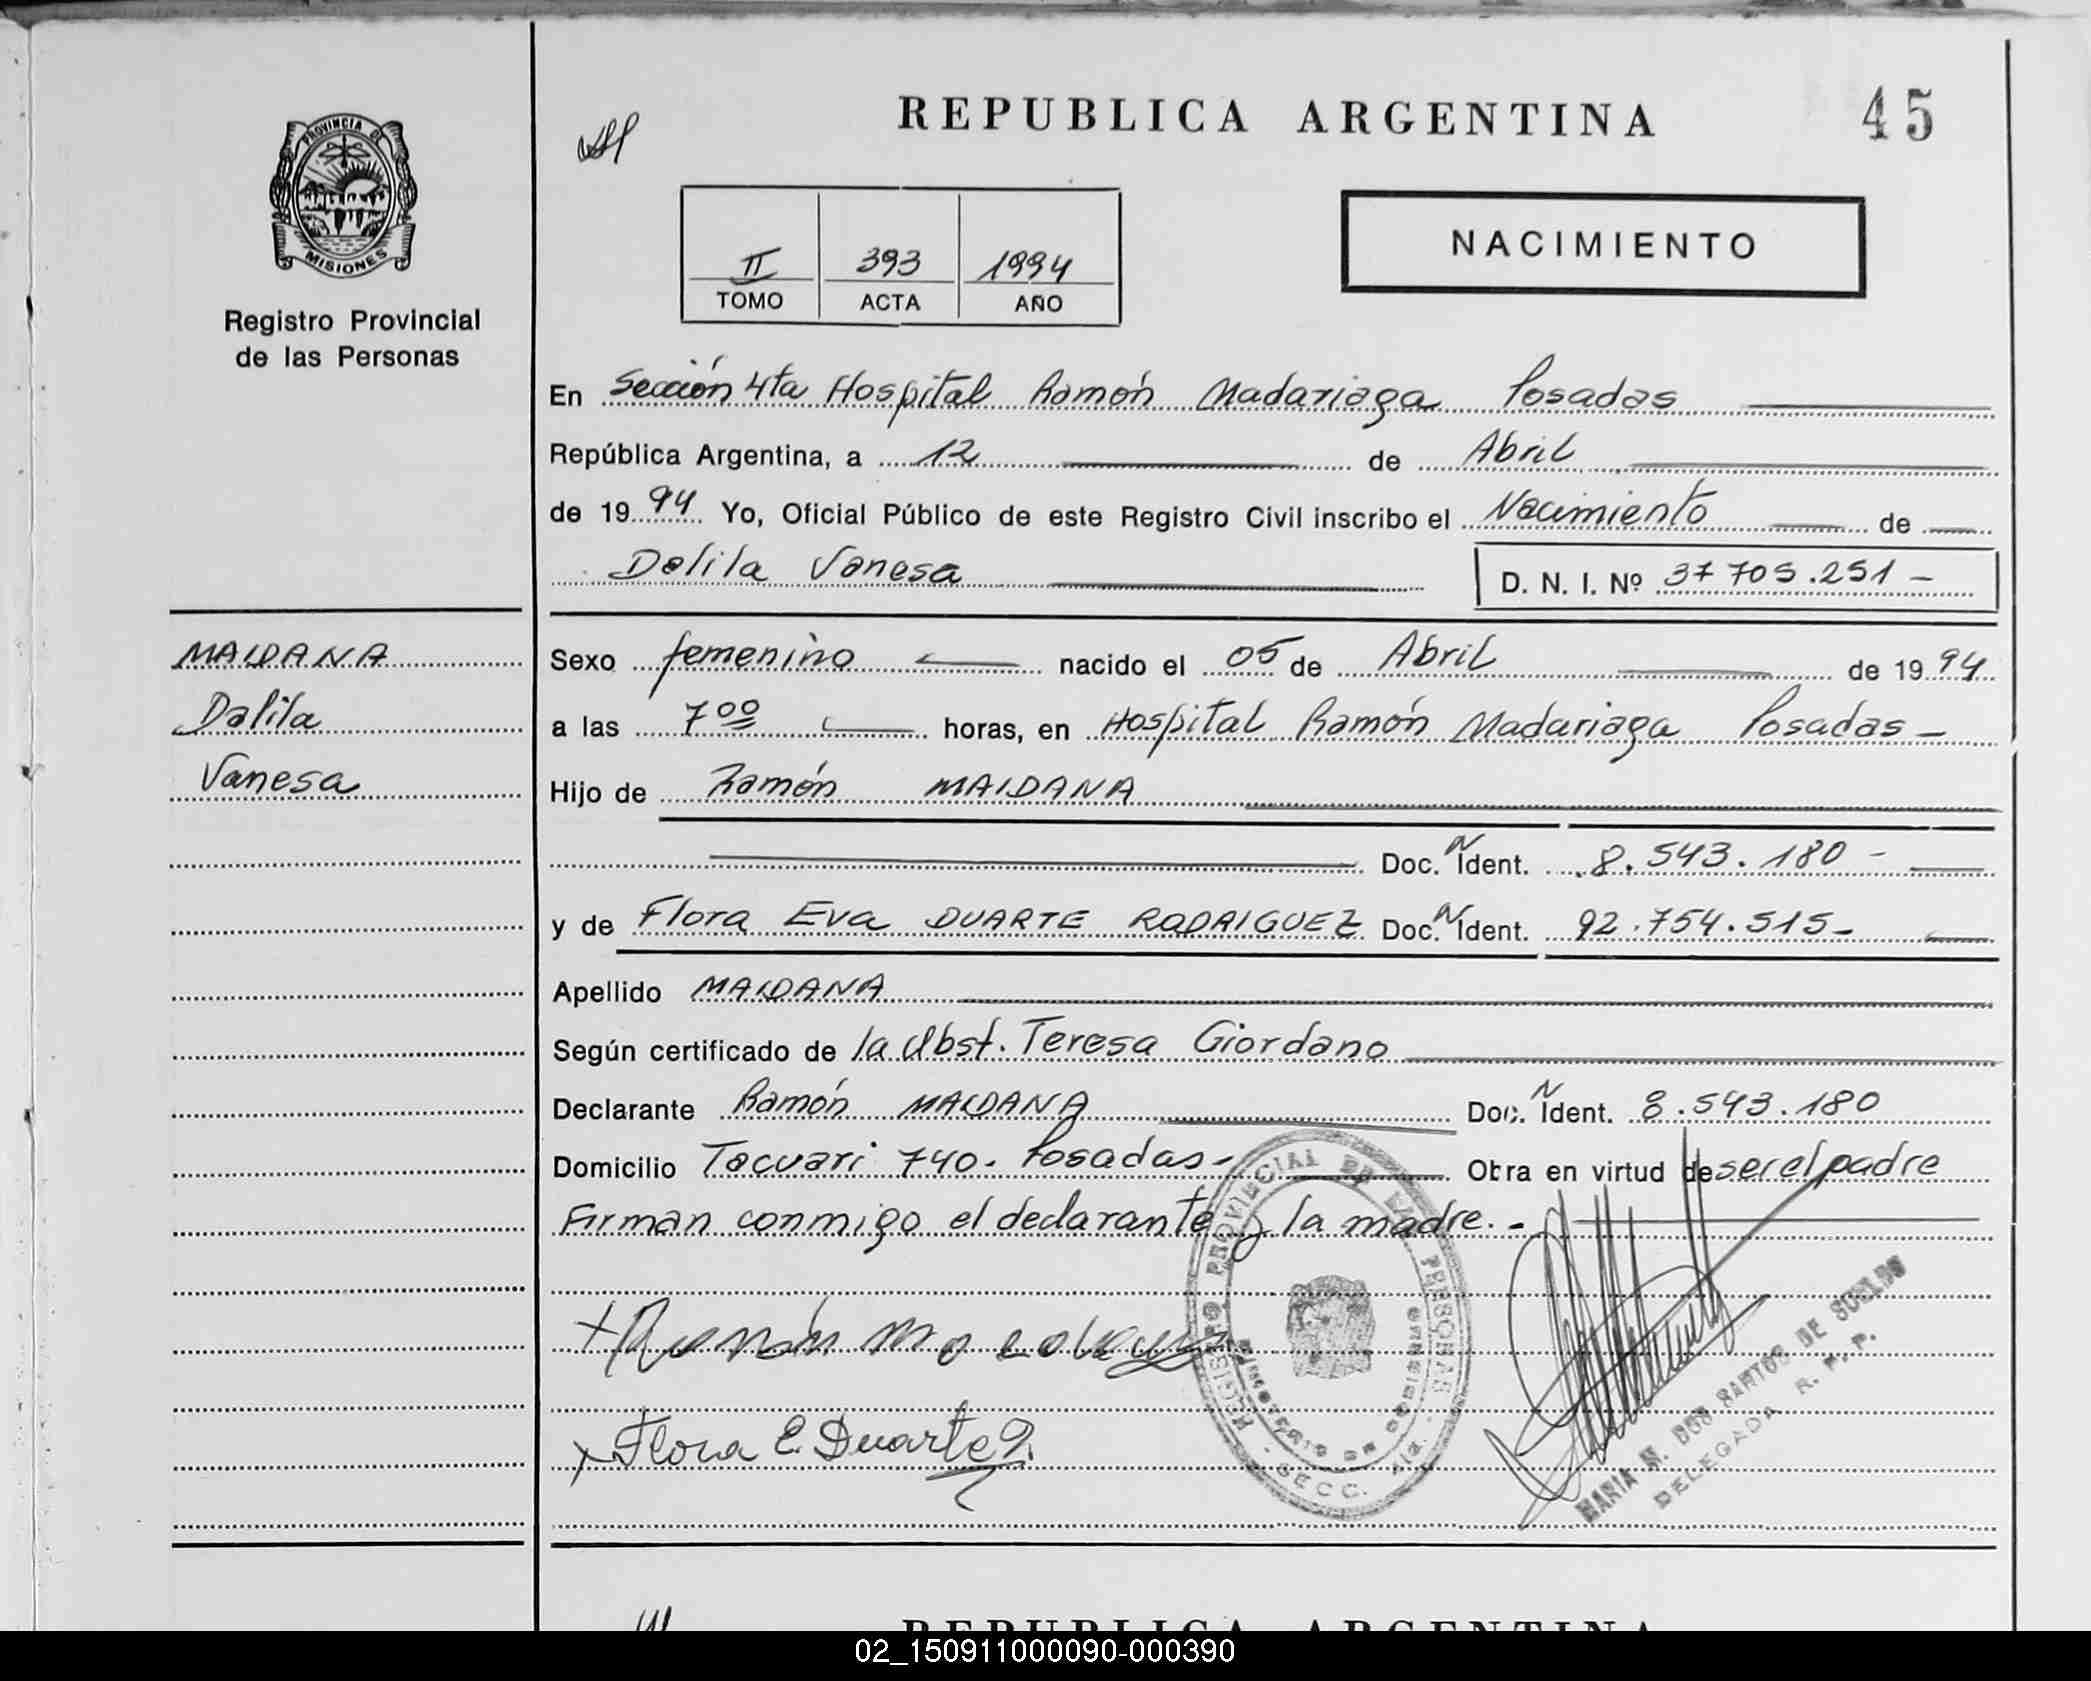 REPUBLICA ARGENTINA 45
PROVINCIA DE
MISIONES
Registro Provincial
de las Personas
II 393 1994
TOMO ACTA AÑO
NACIMIENTO
En Sección 4ta Hospital Ramón Madariaga Posadas
República Argentina, a 12 de Abril
de 1994 Yo, Oficial Público de este Registro Civil inscribo el Nacimiento de
Dalila Vanesa D. N. I. Nº 37 705.251 -
MAIDANA
Dalila
Vanesa
Sexo femenino nacido el 05 de Abril de 1994
a las 7 00 horas, en Hospital Ramón Madariaga Posadas -
Hijo de Ramón MAIDANA
Doc. N Ident. 8.543.180 -
y de Flora Eva DUARTE RODRIGUEZ Doc. N Ident. 92.754.515-
Apellido MAIDANA
Según certificado de la Obst. Teresa Giordano
Declarante Ramón MAIDANA Doc. N Ident. 8.543.180
Domicilio Tacuari 740. Posadas.- Obra en virtud de ser el padre
Firman conmigo el declarante y la madre. -
REGISTRO PROVINCIAL DE LAS PERSONAS
MINISTERIO DE GOBIERNO
SECC.
x Flora E. Duarte
MARIA N. DOS SANTOS DE SUELDO
DELEGADA R. P. P.
REPUBLICA ARGENTINA
02_150911000090-000390